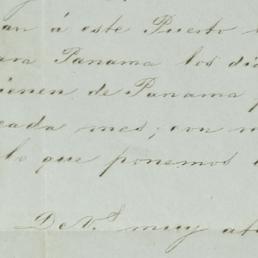 an á este Puerto
ara Panama los dia
ienen de Panama p
cada mes; con m
lo que ponemos
De V.s muy at